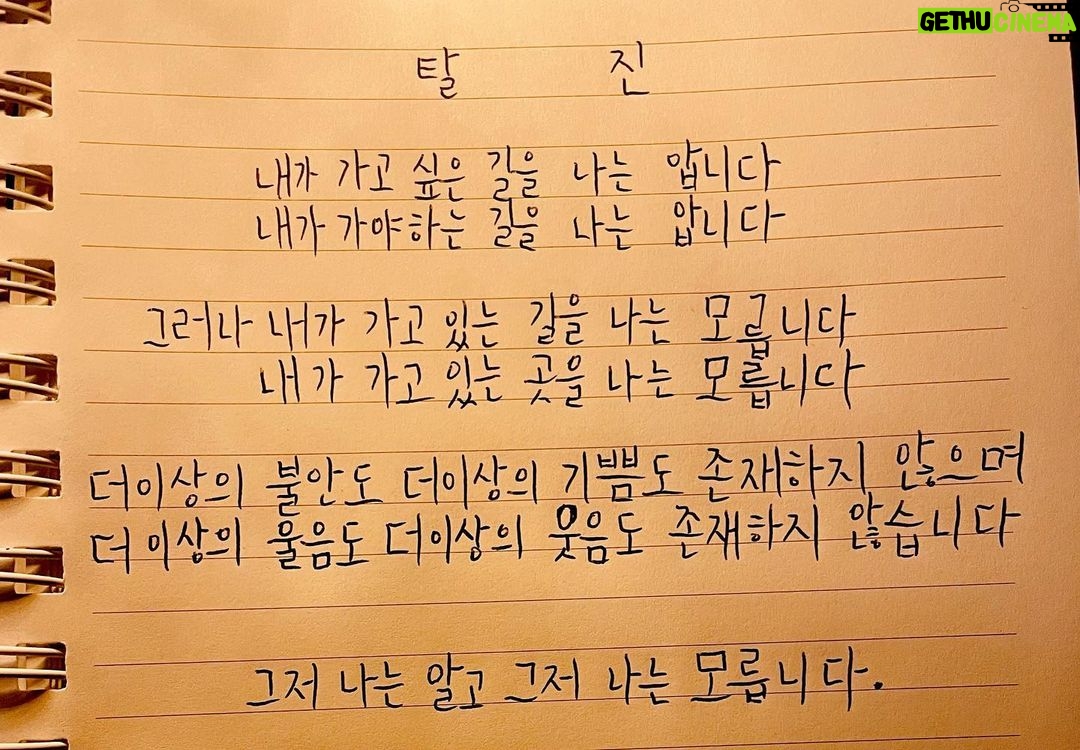 GETHUCINEMA
탈 진
내가 가고 싶은 길을 나는 압니다
내가 가야하는 길을 나는 압니다
그러나 내가 가고 있는 길을 나는 모릅니다
내가 가고 있는 곳을 나는 모릅니다
더이상의 불안도 더이상의 기쁨도 존재하지 않으며
더이상의 울음도 더이상의 웃음도 존재하지 않습니다
그저 나는 알고 그저 나는 모릅니다.